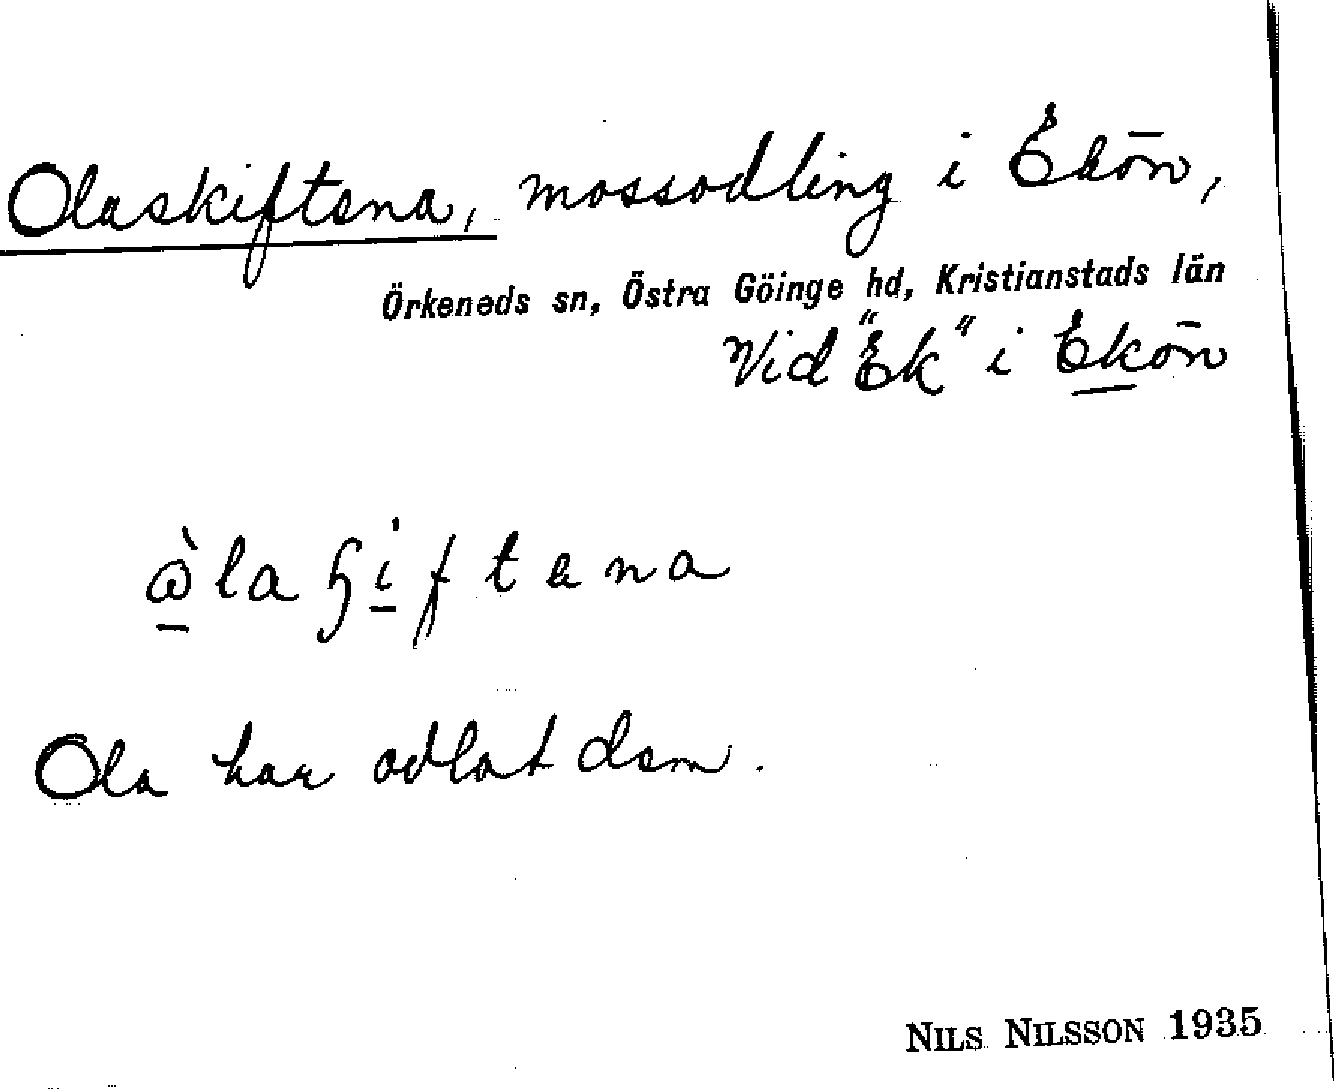 Olaskiftena, mossodling i Ekön,
Örkeneds sn, Östra Göinge hd, Kristianstads län
Vid "Ek" i Ekön
Ola har odlat dem.
NILS NILSSON 1935